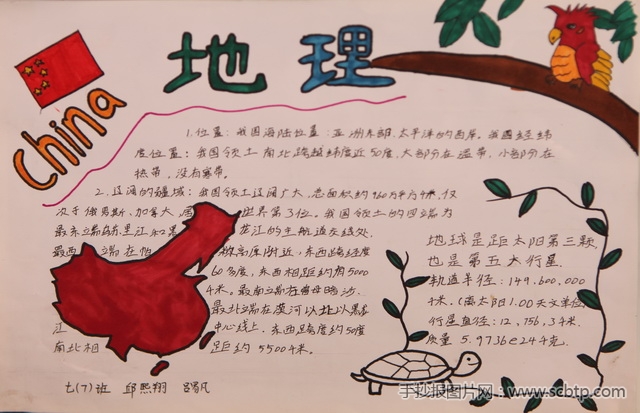 China
地理
1.位置：我国海陆位置：亚洲东部，太平洋的西岸。我国经纬
度位置：我国领土南北跨越纬度近50度，大部分在温带，小部分在
热带，没有寒带。
2.辽阔的疆域：我国领土辽阔广大，总面积约960万平方千米，仅
次于俄罗斯、加拿大，居世界第3位。我国领土的四端为
最东端 黑龙江的主航道交接处
最西端在帕 高原附近，东西跨经度
60多度，东西相距约5000
千米。最南端在曾母暗沙，
最北端在漠河以北以黑龙
江中心线上，东西跨度约50度
南北相距约5500千米。
地球是距太阳第三颗，
也是第五大行星
轨道半径：149,600,000
千米，(离太阳1.00天文单位)
行星直径：12,756,3千米
质量 5.9736e24千克.
七(7)班 邱熙翔 吕凡
手抄报图片网：www.scbtp.com